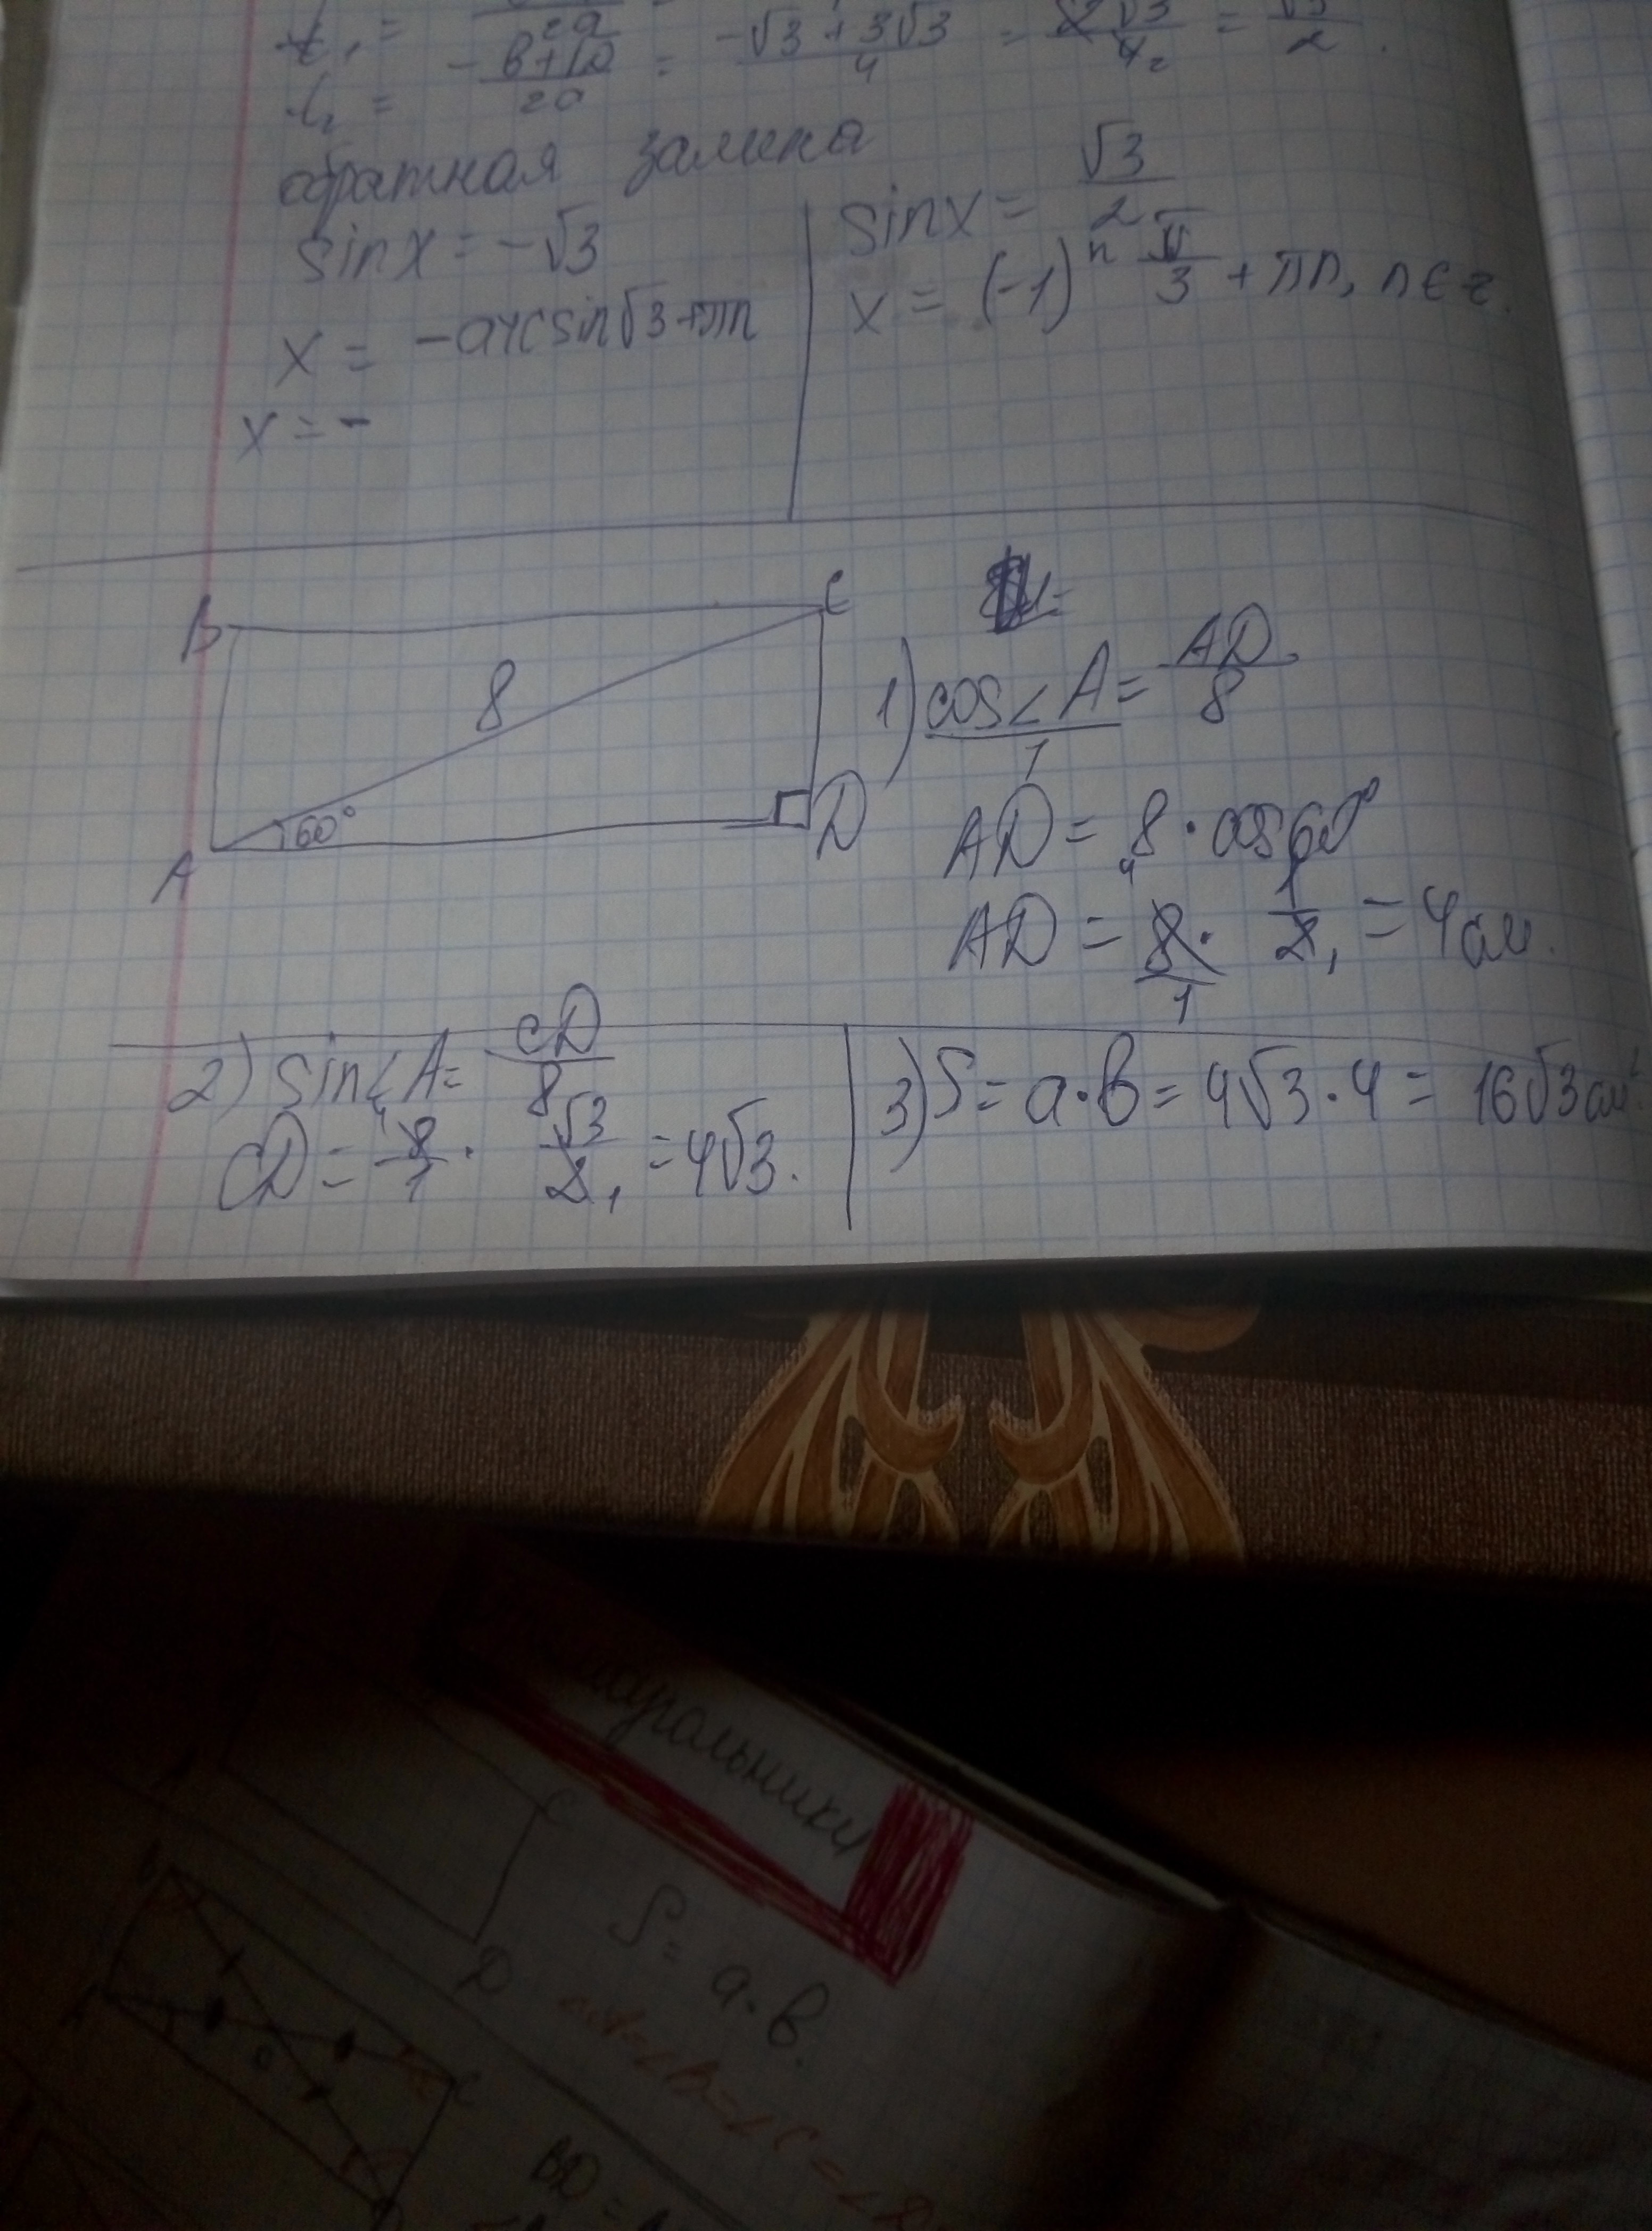 t₁ =
t₂ = -b+√D / 2a = -√3+3√3 / 4 = 2√3 / 4₂ = √3 / 2.
обратная замена
sinx = -√3
x = -arcsin√3+πn
x = -
sinx = √3 / 2
x = (-1)ⁿ π/3 + πn, n ∈ z.
B
C
8
60°
A
D
1) cos∠A / 1 = AD / 8
AD = 8 · cos60°
AD = 8/1 · 1/2 = 4см.
2) sin∠A = CD / 8
CD = 8/1 · √3/2 = 4√3.
3) S = a·b = 4√3·4 = 16√3см²
C
D
S = a·b.
B
A
o
C
D
BD =